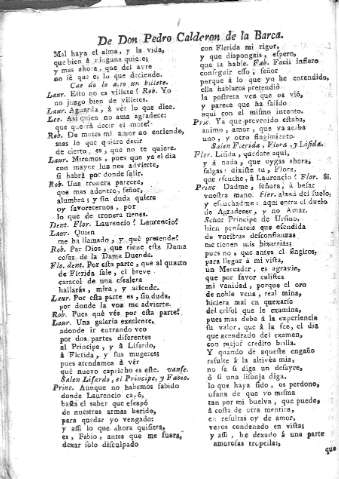 De Don Pedro Calderon de la Barca.
Mal haya el alma, y la vida,
que bien à ninguna quiere;
y mas ahora, que del ayre
no sè que es lo que deciende.
Cae de lo alto un villete.
Laur. Esto no es villete? Rob. Yo
no juego bien de villetes.
Laur. Aguarda, à vèr lo que dice.
Lee. Asi quien no ama agradece:
què querrà decir el mote?
Rob. De motes mi amor no entiende,
mas lo que quiere decir
de cierto, es, que no te quiere.
Laur. Miremos, pues que yà el dia
con mayor luz nos advierte,
si habrà por donde salir.
Rob. Una tronera parece,
que mas adentro, señor,
alumbra; y sin duda quiera
oy favorecernos, por
lo que de tronera tienes.
Dent. Flor. Laurencio! Laurencio!
Laur. Quien
me ha llamado, y què pretende?
Rob. Por Dios, que tiene esta Dama
cosas de la Dama Duende.
Flo. dent. Por esta parte, que al quarto
de Flerida sale, el breve
caracol de una escalera
hallaràs, mira, y advierte.
Laur. Por esta parte es, sin duda,
por donde la voz me advierte.
Rob. Pues què vès por esta parte?
Laur. Una galeria excelente,
adonde ir entrando veo
por dos partes diferentes
al Principe, y à Lisardo,
à Flerida, y sus mugeres
pues acudamos à vèr
què nuevo capricho es este. vanse.
Salen Liferdo, el Principe, y Fabio.
Princ. Aunque no habemos sabido
donde Laurencio està,
basta el saber que escapò
de nuestras armas herido,
para quedar yo vengado:
y assi lo que ahora quisiera,
es, Fabio, antes que me fuera,
dexar solo disculpado
con Flerida mi rigor,
y que dispongais, espero,
que la hable. Fab. Facil infiero
conseguir esso, señor
porque à lo que yo he entendido,
ella hablaros pretendiò
la postrera vez que os viò,
y parece que ha salido
aqui con el mismo intento.
Prin. Yà que prevenido estaba,
animo, amor, que và acaba
uno, y otro fingimiento.
Salen Flerida, Flora, y Lisida.
Fler. Lisida, quedate aqui,
y à nada, que oygas ahora,
salgas: assiste tu, Flora,
que escuche, à Laurencio? Flor. Sì.
Princ. Dadme, señora, à besar
vuestra mano. Fler. Alzad del suelo,
y escuchadme: aqui entra el duelo
de Agradecer, y no Amar.
Señor Principe de Ursino,
bien pensareis que escondida
de vuestras desconfianzas
me tienen mis bizarrias;
pues no, que antes el fingiros,
para llegar à mi vista,
un Mercader, es agravio,
que por favor califica
mi vanidad, porque el oro
de noble vena, real mina,
hiciera mal en quexarse
del crisol que le examina,
pues mas debe à la experiencia
su valor, que à la fee, el dia
que acendrado del examen,
con mayor credito brilla.
Y quando de aqueste engaño
resulte à la altivèz mia,
no sè si diga un desayre,
ò si una lisonja diga,
lo que haya sido, os perdono,
ufana de que vò misma
tan por mi buelva, que pueda,
à costa de otra mentira,
es resultas oy de amor,
veros condenado en vistas;
y assi, he dexado à una parte
amorosas tropelias,
que